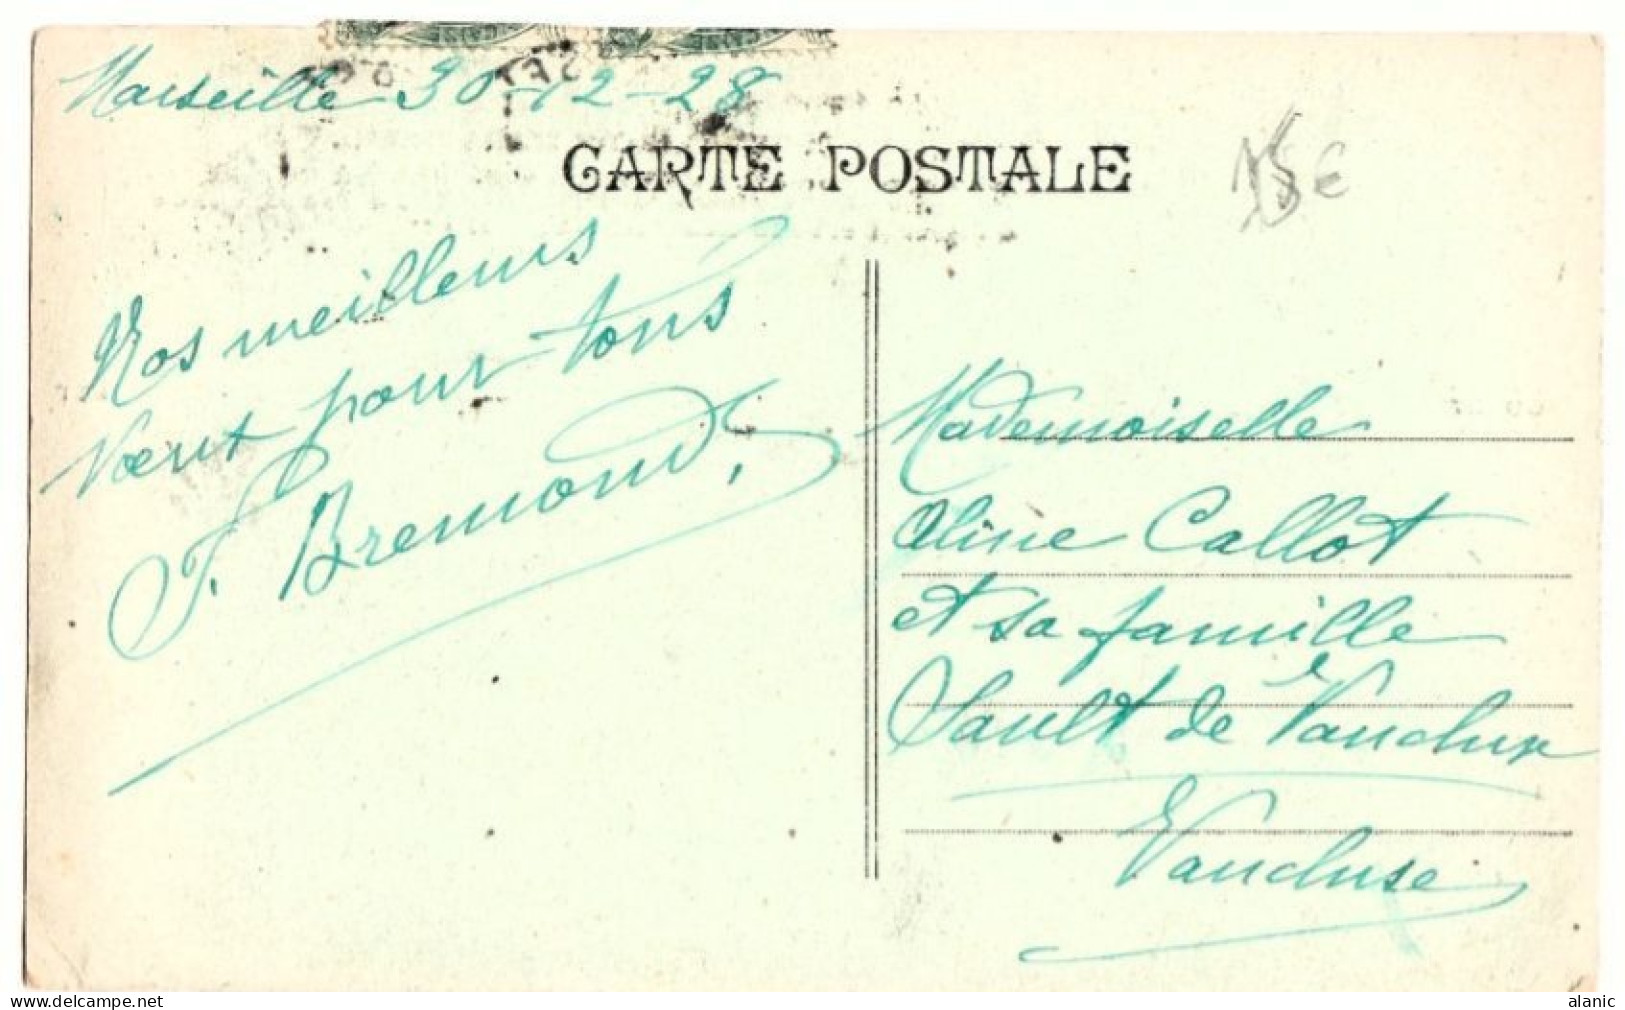 Marseille 30-12-28
CARTE POSTALE
15 €
Nos meilleurs
Vœux pour tous
F. Bremond
Mademoiselle
Aline Callot
et sa famille
Sault de Vaucluse
Vaucluse
alanic